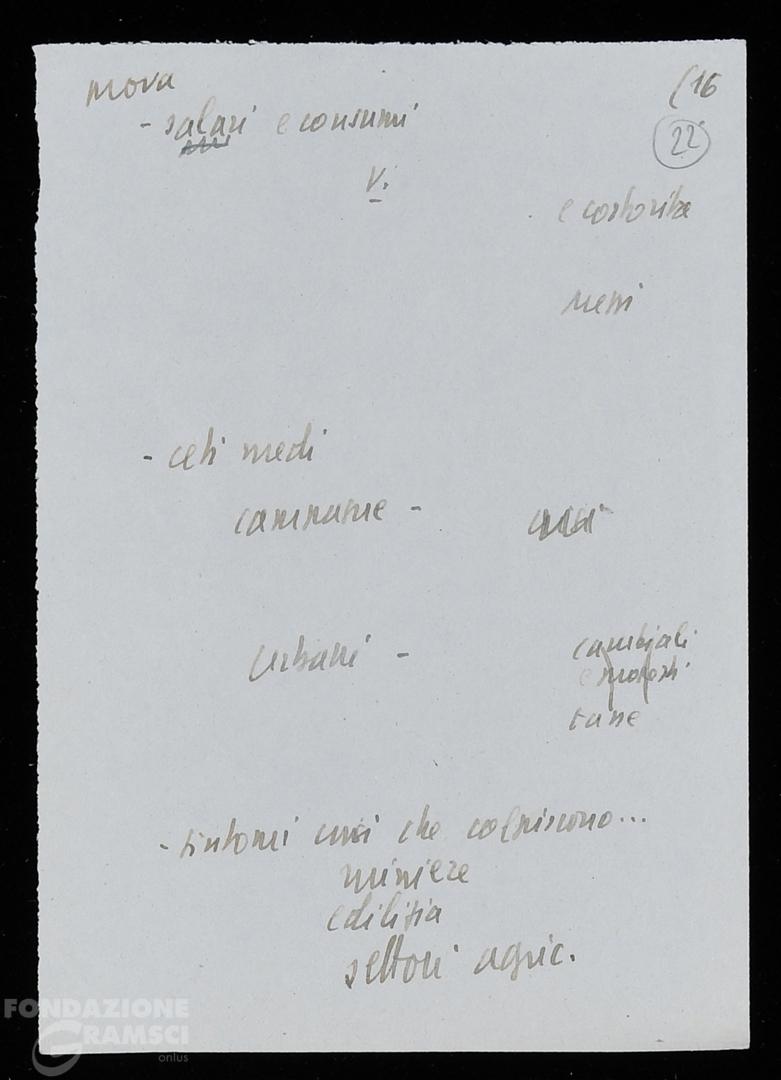 prova
(16
- salari e consumi
22
V.
prezzi
- ceti medi
campagne -
crisi
urbani -
cambiali
e protesti
tasse
- sintomi crisi che colpiscono...
miniere
edilizia
settori agric.
FONDAZIONE
GRAMSCI
onlus